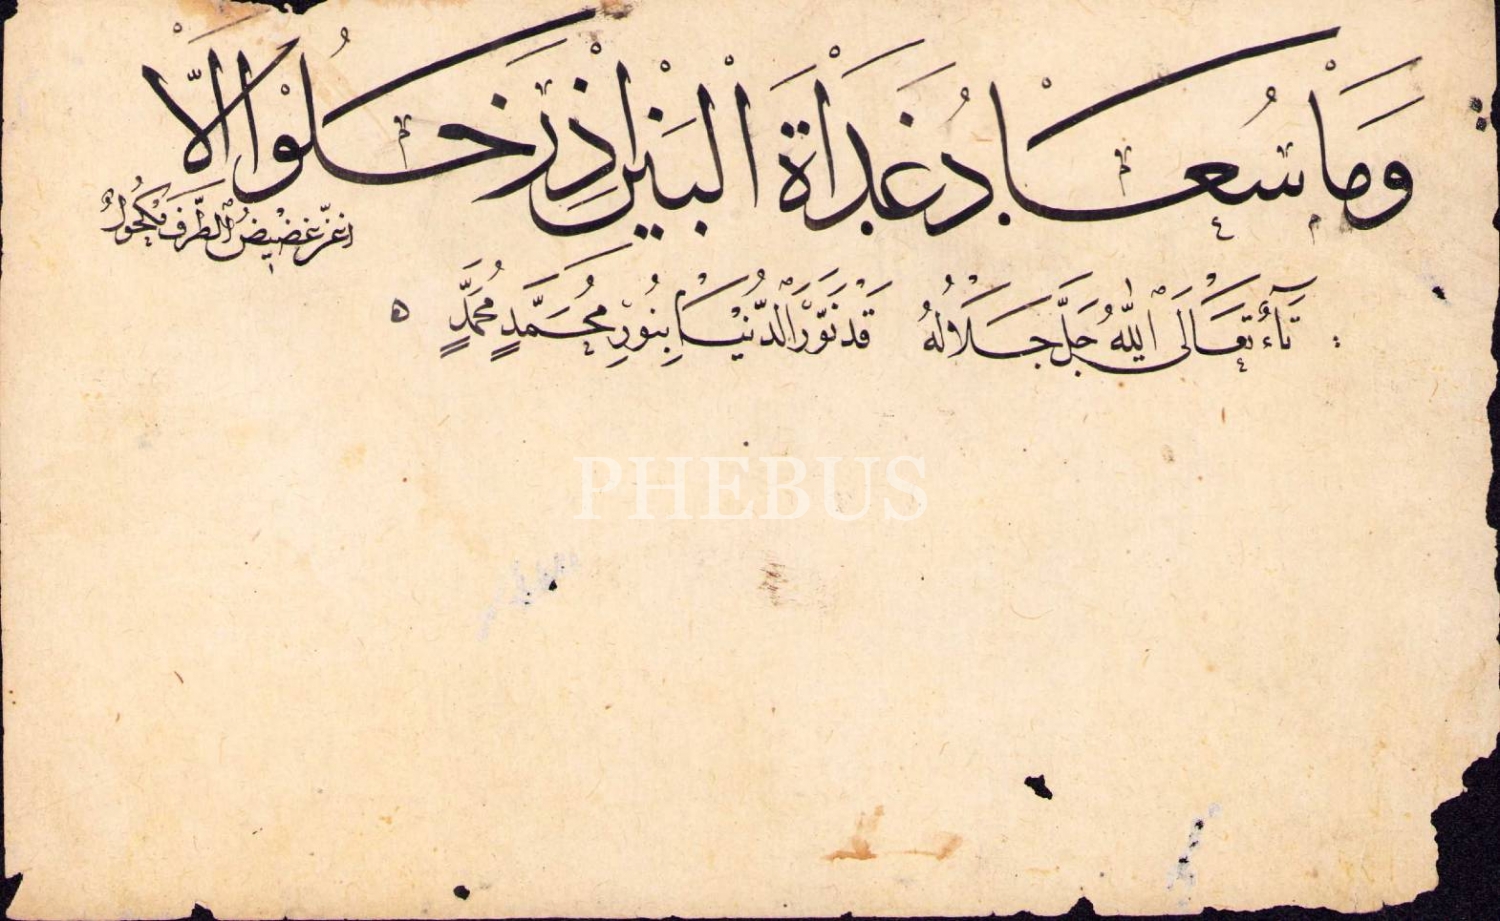 وَمَا سُعَادُ غَدَاةَ الْبَيْنِ إِذْ رَحَلُوا إِلَّا
اغَنُّ غَضِيضُ الطَّرْفِ مَكْحُولُ
تَاءُ تَعَالَى اللّٰهُ جَلَّ جَلَالُهُ قَدْ نَوَّرَ الدُّنْيَا بِنُورِ مُحَمَّدٍ مُحَمَّدٍ ه
PHEBUS